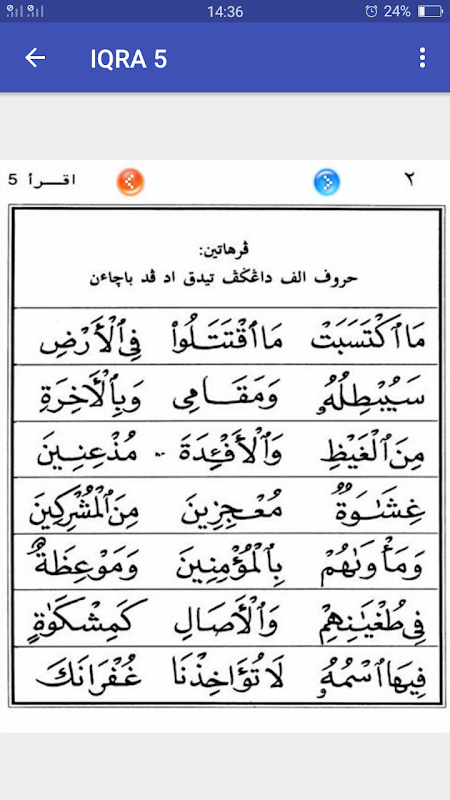 14:36 24%
IQRA 5
اقــرأ 5 ٢
ڤرهاتين:
حروف الف داڠݢڤ تيدق اد ڤد باچاءن
مَا ٱكْتَسَبَتْ مَا ٱقْتَتَلُوا۟ فِى ٱلْأَرْضِ
سَيُبْطِلُهُۥ وَمَقَامِى وَبِٱلْأَخِرَةِ
مِنَ ٱلْغَيْظِ وَٱلْأَفْـِٔدَةَ مُذْعِنِينَ
غِشَـٰوَةٌ مُعْجِزِينَ مِنَ ٱلْمُشْرِكِينَ
وَمَأْوَىٰهُمْ بِٱلْمُؤْمِنِينَ وَمَوْعِظَةٌ
فِى طُغْيَـٰنِهِمْ وَٱلْأَصَالِ كَمِشْكَوٰةٍ
فِيهَا ٱسْمُهُۥ لَا تُؤَاخِذْنَا غُفْرَانَكَ